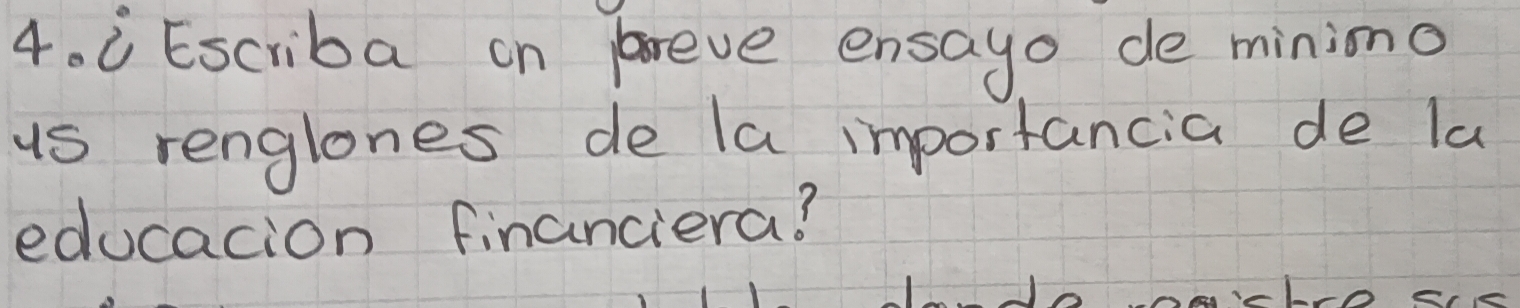 4. ¿ Escriba un breve ensayo de minimo
45 renglones de la importancia de la
educacion financiera?
donde registre sus